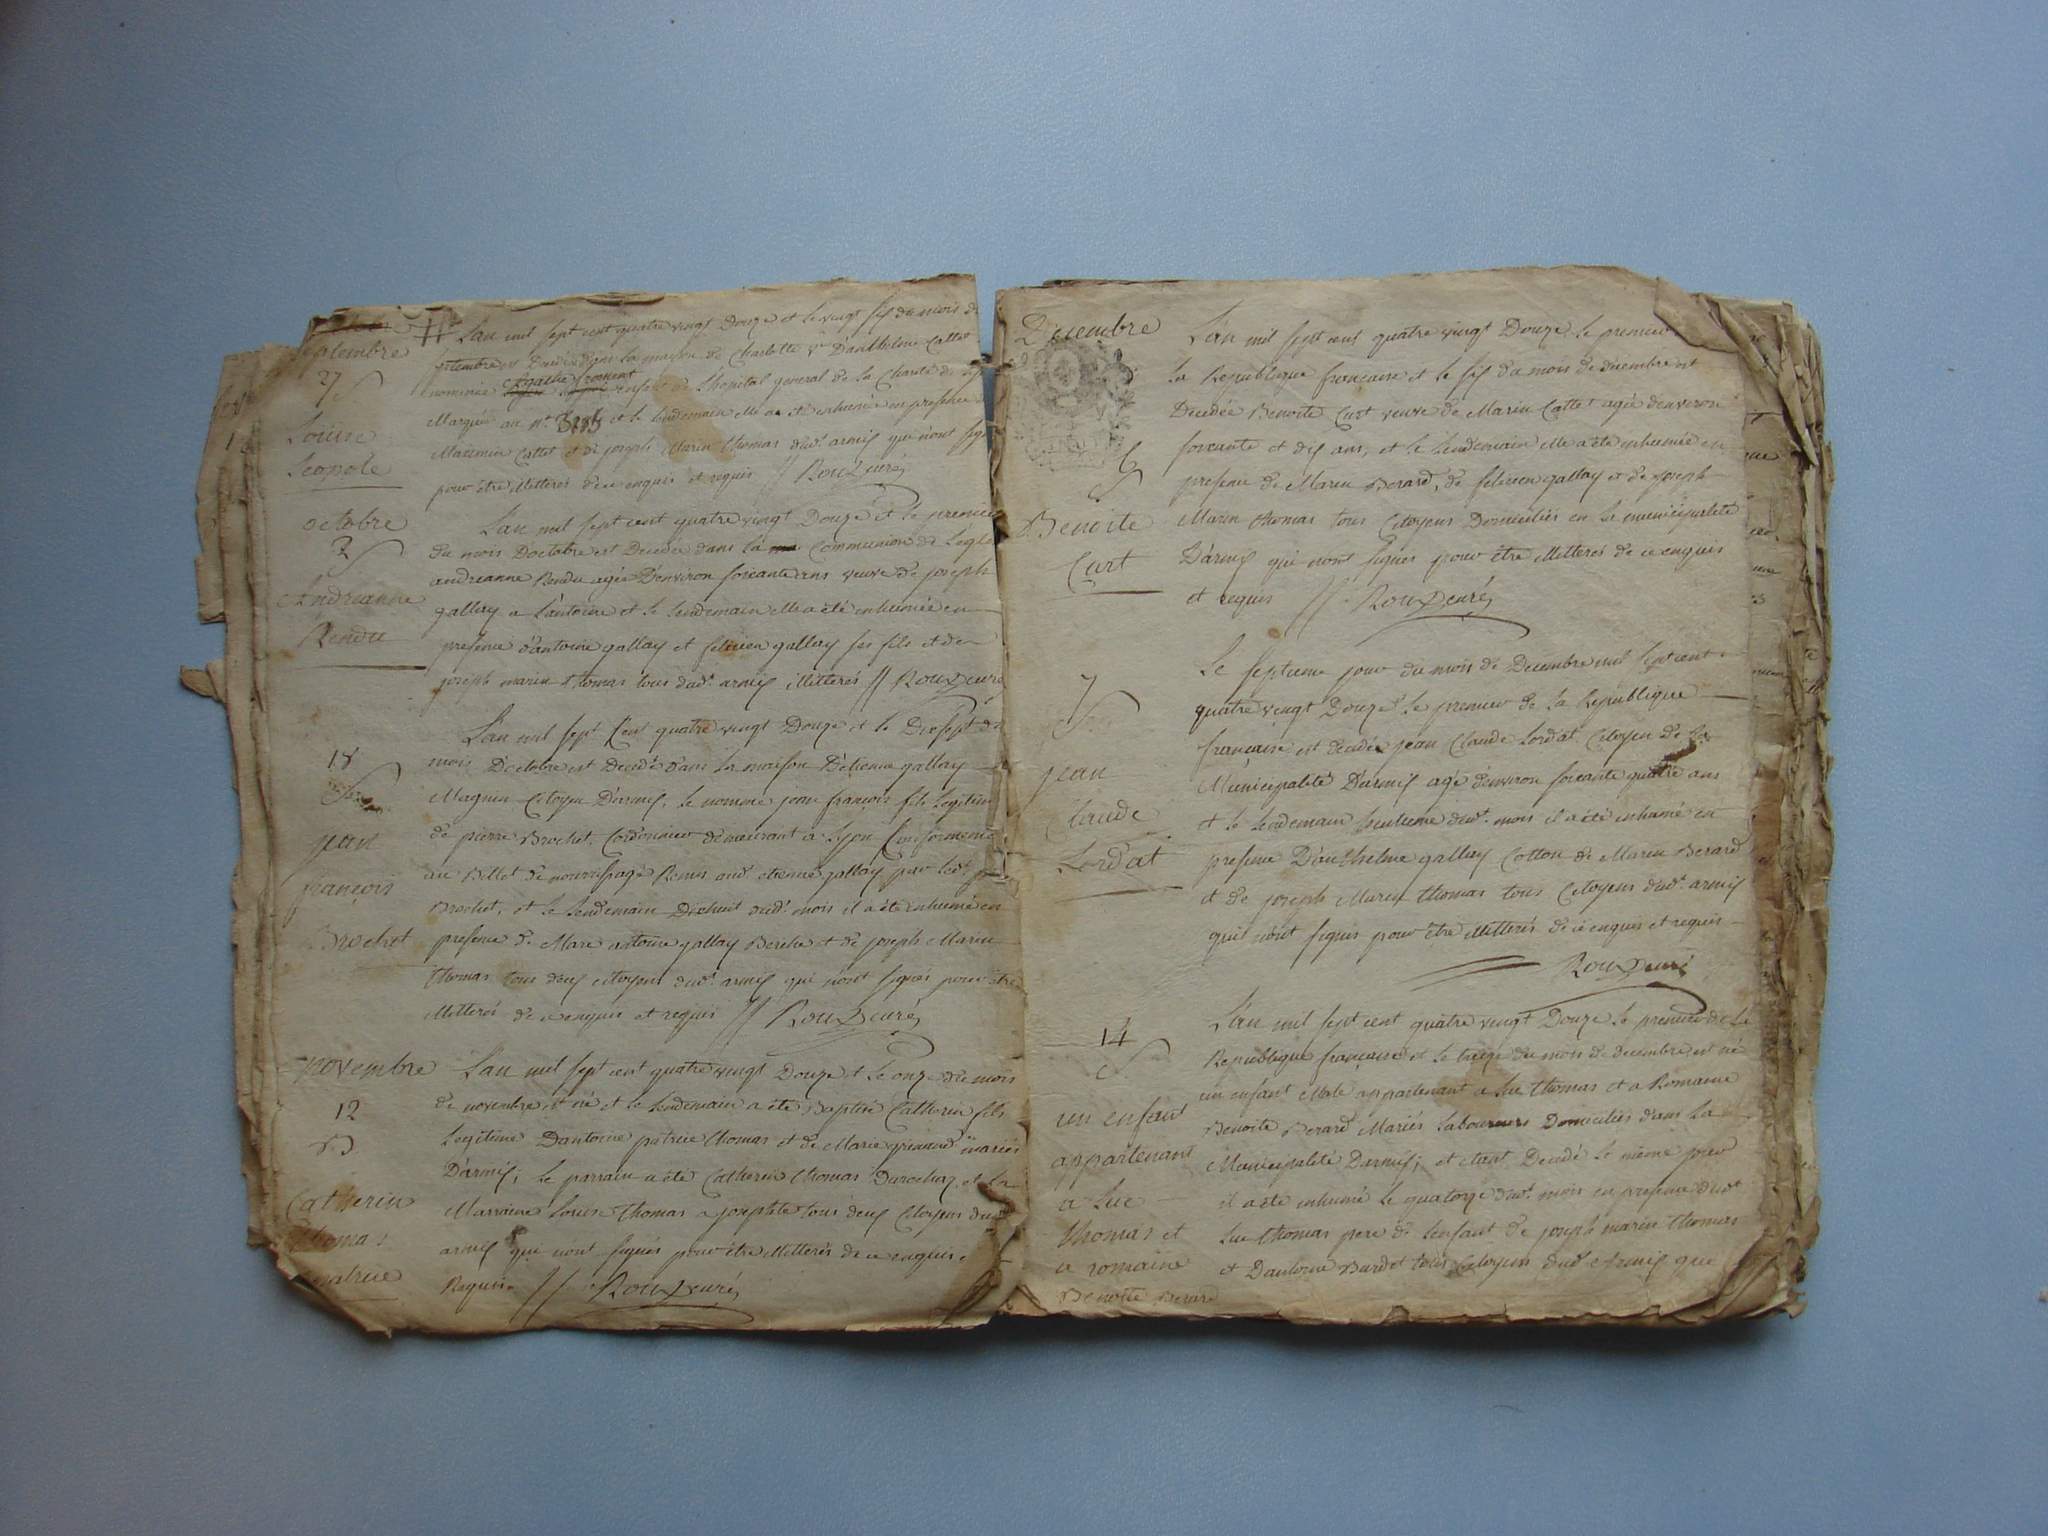 Septembre
27
Louise
Leopole
L'an mil sept cent quatre vingt Douze et le vingt six du mois de
septembre est Decedée dans la maison de Charlotte Ve D'anthelme Cattet
nommée Agathe froment enfant de l'hopital general de la Charité de
Marquée au N° et le lendemain elle a été inhumée en presence de
Maximin Cattet et de joseph Marin thomas dud. armix qui n'ont signé
pour être illitterés de ce enquis et requis // Roux curé
octobre
2
Andreanne
Rendu
L'an mil sept cent quatre vingt Douze et le premier
du mois D'octobre est Decedée dans la Communion de L'eglise
andreanne Rendu agée D'environ soixante ans veuve de joseph
gallay a L'antoine et le lendemain elle a été inhumée en
presence d'antoine gallay et felicien gallay ses fils et de
joseph marin thomas tous dud. armix illitterés // Roux curé
18
jean
françois
Brochet
L'an mil sept Cent quatre vingt Douze et le Dixsept du
mois D'octobre est Decedé dans la maison D'etienne gallay
Magnin Citoyen D'armix, le nommé jean françois fils legitime
de pierre Brochet, Cordonnier demeurant a Lyon Conformement
au Billet de nourrissage Remis aud. etienne gallay par led.
Brochet, et le lendemain Dixhuit dud. mois il a été inhumé en
presence de Marc antoine gallay Berche et de joseph Marin
thomas tous deux citoyens dud. armix qui n'ont signés pour être
illitterés de ce enquis et requis // Roux curé
novembre
12
B
Catherin
thomas
patrue
L'an mil sept cent quatre vingt Douze et le onze du mois
de novembre est né et le lendemain a été Baptisé Catherin fils
Legitime D'antoine patrue thomas et de Marie grimand mariés
D'armix; le parrain a été Catherin thomas Durochay, et la
Marraine Louise thomas a josephte tous deux Citoyens dud.
armix qui n'ont signés pour être illitterés de ce enquis et
Requis // Roux curé
Decembre
6
Benoite
Curt
L'an mil sept cent quatre vingt Douze le premier
de la Republique francaise et le six du mois de decembre est
Decedée Benoite Curt veuve de Marin Cattet agée d'environ
soixante et dix ans, et le lendemain elle a été inhumée en
presence de Marin Berard, de felicien gallay et de joseph
Marin thomas tous Citoyens Domiciliés en la municipalité
D'armix qui n'ont signés pour être illitterés de ce enquis
et requis // Roux curé
7
jean
Claude
Lordat
Le septieme jour du mois de Decembre mil sept cent
quatre vingt Douze le premier de la Republique
française est decedé jean Claude Lordat Citoyen de la
Municipalité D'armix agé d'environ soixante quatre ans
et le lendemain huitieme dud. mois il a été inhumé en
presence D'anthelme gallay Cotton de Marin Berard
et de joseph Marin thomas tous Citoyens dud. armix
qui n'ont signés pour être illitterés de ce enquis et requis
Roux curé
14
un enfant
appartenant
a Luc
thomas et
a romaine
Benoite Berard
L'an mil sept cent quatre vingt Douze le premier de la
Republique française et le treize du mois de decembre est né
un enfant Male appartenant a Luc thomas et a Romaine
Benoite Berard Mariés laboureurs Domiciliés dans la
Municipalité D'armix; et etant Decedé le même jour
il a été inhumé le quatorze dud. mois en presence dud.
Luc thomas pere de l'enfant de joseph marin thomas
et D'antoine Burdet tous Citoyens dud. Armix que